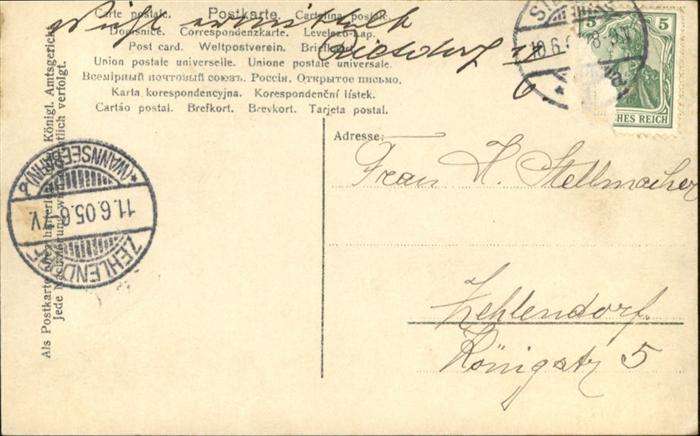 Nicht
Carte postale. Postkarte. Cartolina postale.
Dopisnice. Correspondenzkarte. Levelezö-Lap.
Post card. Weltpostverein. Briefkaart.
Union postale universelle. Unione postale universale.
Всемірный почтовый союзъ. Россія. Открытое письмо.
Karta korespondencyjna. Korespondenční lístek.
Cartão postal. Brefkort. Brevkort. Tarjeta postal.
5 5
HES REICH
Als Postkarte Königl. Amtsgericht
jede verfolgt.
(WANNSEEBAHN)
11.6.05.6-
V.
ZEHLENDORF
Adresse:
Frau H. Stellmacher
Zehlendorf.
Königstr 5